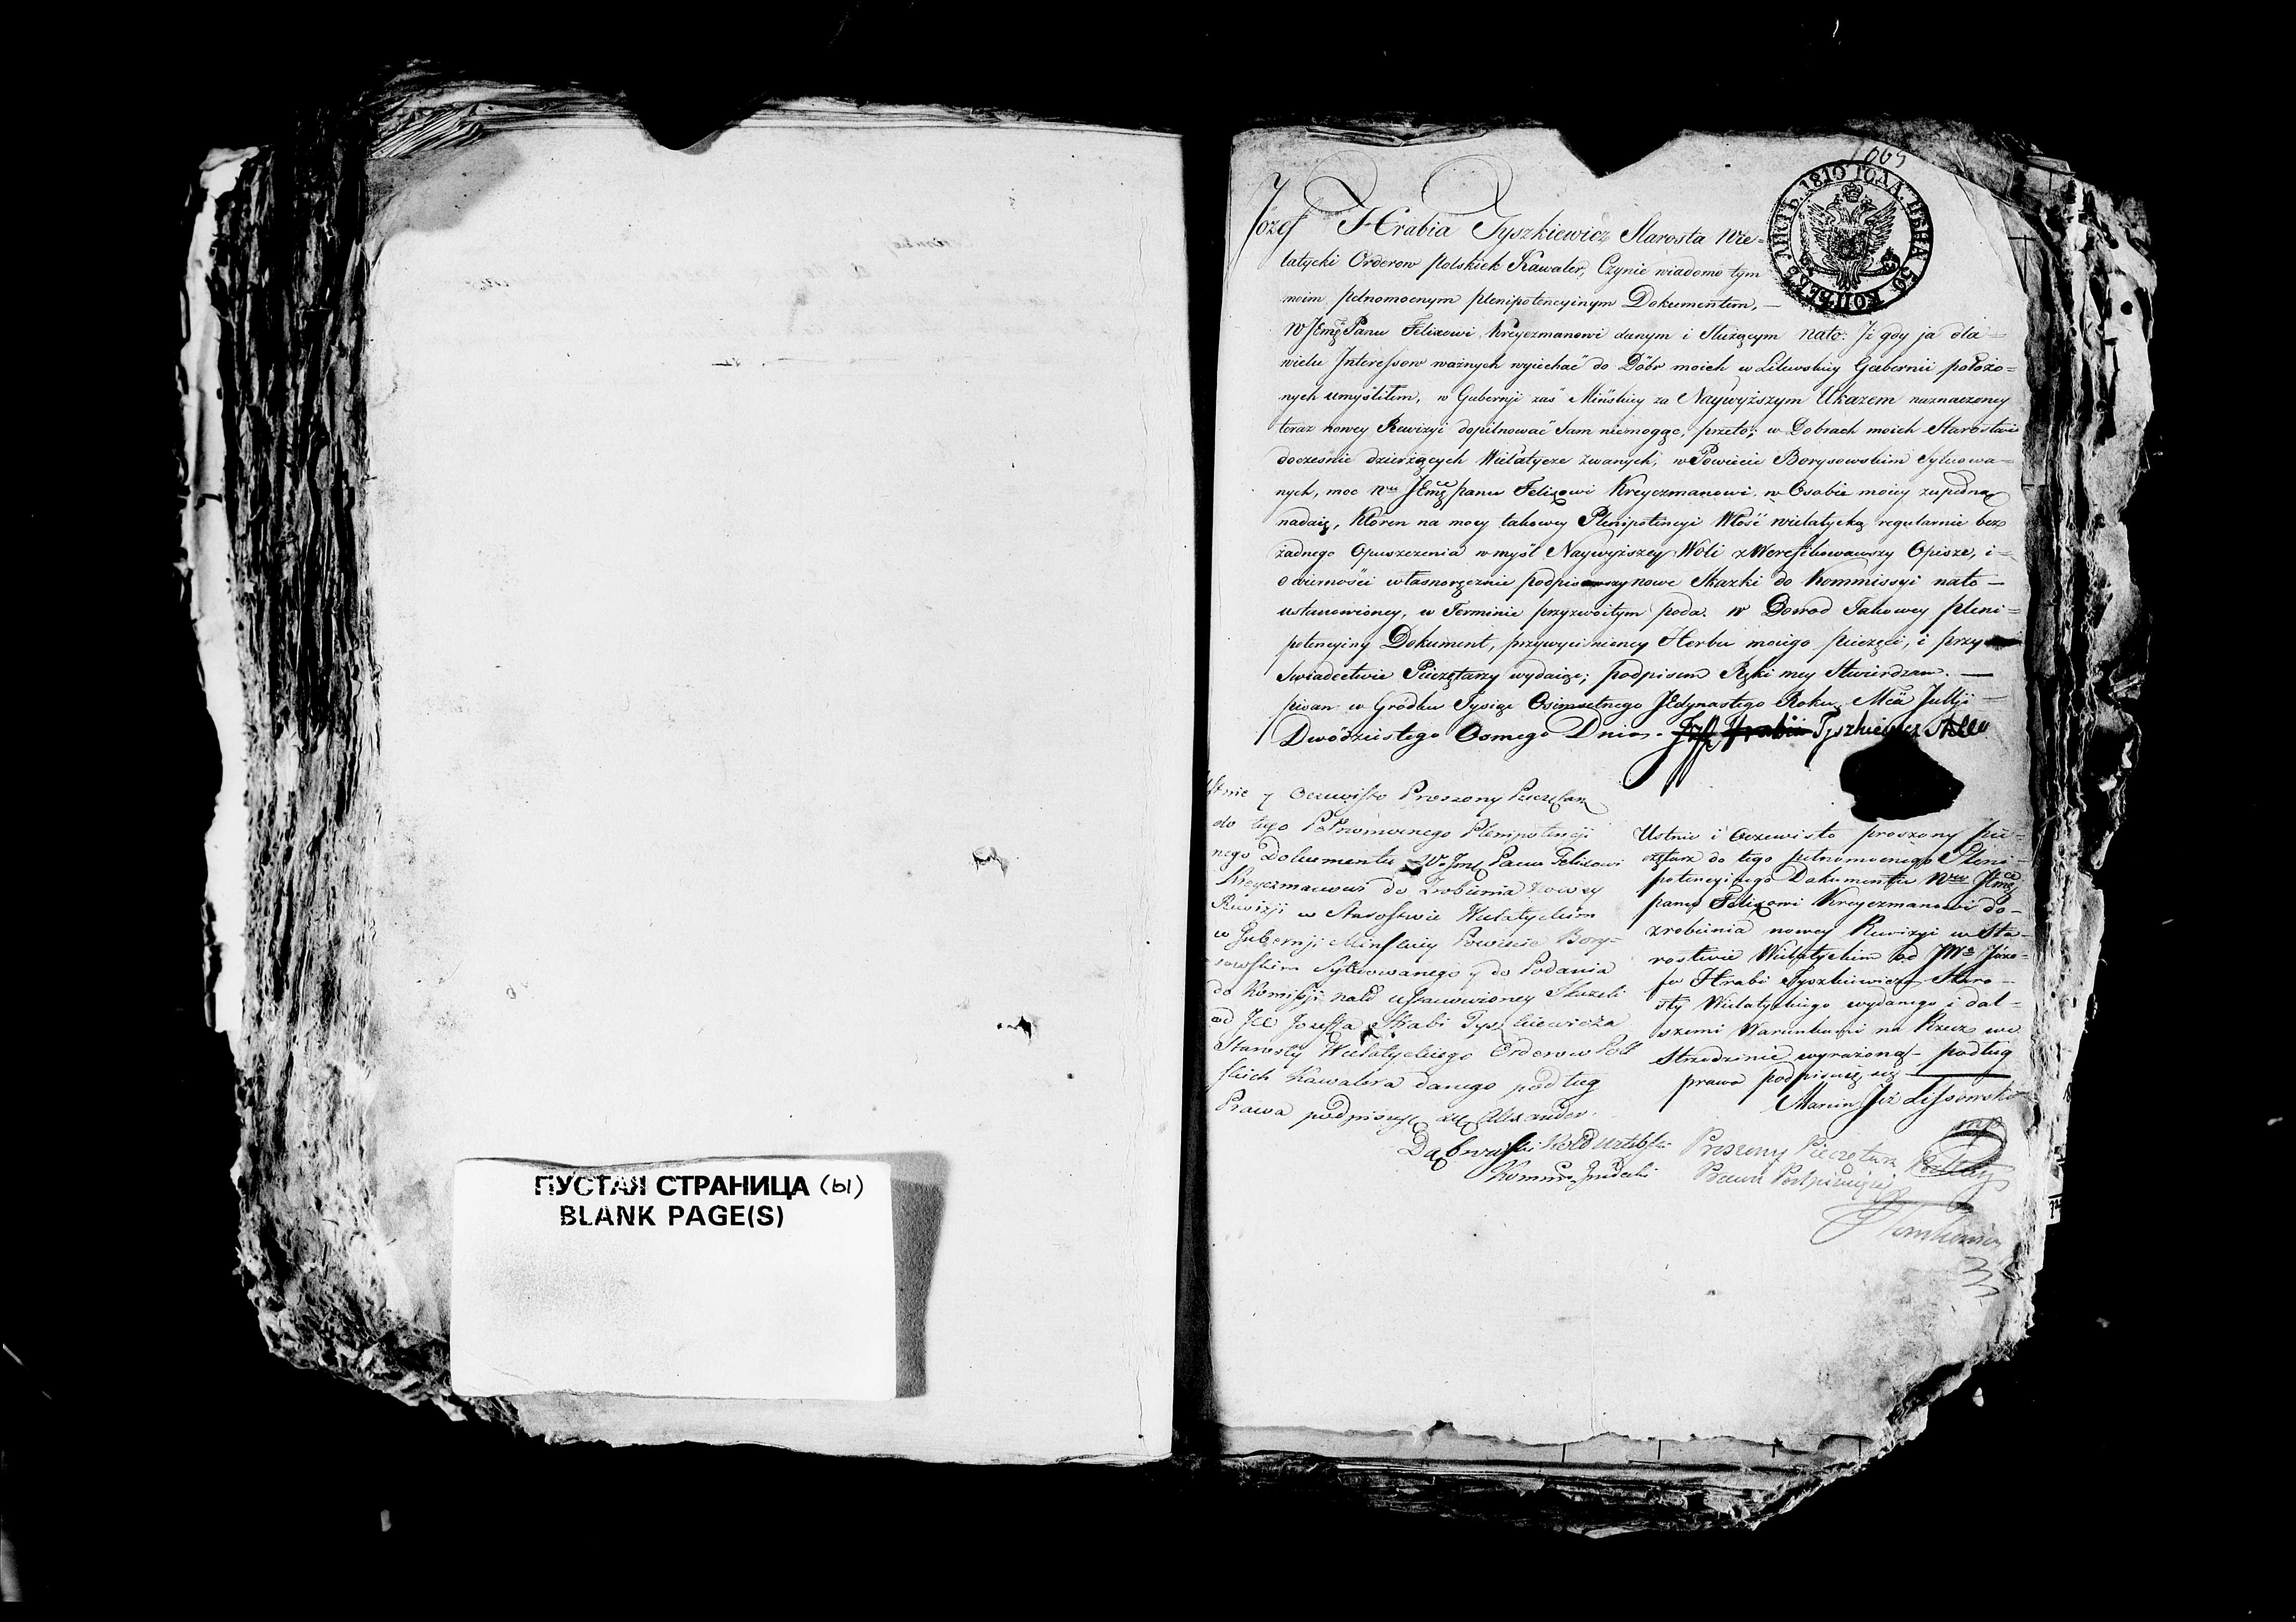 ПУСТАЯ СТРАНИЦА (ы)
BLANK PAGE(S)
1065
ЛИСТЪ. 1810 ГОДА ЦѢНА 50 КОПѢЕКЪ
Józef Hrabia Tyszkiewicz Starosta Wie=
latycki Orderow Polskich Kawaler, Czynię wiadomo tym
moim pełnomocnym plenipotencyjnym Dokumentem, —
W JEmę Panu Felixowi Kreyczmanowi danym i Służącym nato: Iż gdy ja dla =
wielu Interessow ważnych wyiechać do Dóbr moich w Litewskiey Gubernii położo=
nych umyśliłem, w Gubernji zaś Mińskiey za Naywyższym Ukazem naznaczoney
teraz nowey Rewizyi dopilnować Sam niemogąc, przeto; w Dobrach moich Starostwie
docześnie dzierżących Wielatycze zwanych, w Powiecie Borysowskim Sytuowa=
nych, moc JEmę panu Felixowi Kreyczmanowi w Osobie moiey zupełną
nadaię, Któren na mocy takowey Plenipotencyi Włość wielatycką regularnie bez
żadnego Opuszczenia w myśl Naywyższey Woli zWereffikowawszy Opisze, i =
o wierności własnoręcznie podpisawszy nowe Skazki do Kommissyi nato —
ustanowioney, w Terminie przyzwoitym poda. W Dowod Takowey pleni=
potencyiny Dokument, przywyciśnieney Herbu moiego pieczęci, i przy
Swiadectwie Pieczętarzy wydaiąc, podpisem Ręki mey Stwierdzam. —
pisan w Gródku Tysiąc Osimsetnego Jedynastego Roku Mca Julji =
Dwódziestego Osmego Dnia. Józef Hrabia Tyszkiewicz
Ustnie y Oczewisto Proszony Pieczętarz
do tego Pełnomocnego Plenipotencji
nego Dokumentu W Jmę Panu Felixowi
Kreyczmanowi do Zrobienia nowey
Rewizji w Starostwie Wielatyckim
w Gubernji Minskiey Powiecie Bory=
sowskim Sytuowanego y do Podania
do Komissji nato ustanowioney Skazki
od Józeffa Hrabi Tyszkiewicza
Starosty Wielatyckiego Orderow Pol
skich Kawalera danego podług
Prawa podpisuję się Alexander
Dąbrowski
Ustnie i Oczewisto proszony pie=
czętarz do tego pełnomocnego Pleni=
potencyinego Dokumentu JEmę
panu Felixowi Kreyczmanowi do=
zrobienia nowey Rewizyi w Sta=
rostwie Wielatyckim od JWa Józe=
fa Hrabi Tyszkiewicza Staro=
sty Wielatyckiego wydanego i dal=
szemi Warunkami na Rzecz we
Strzodzinie wyrażoną — podług
prawa podpisuię się
Marcin Lissowski
mp
Proszony Pieczętarz
Prawa Podpisuięsię